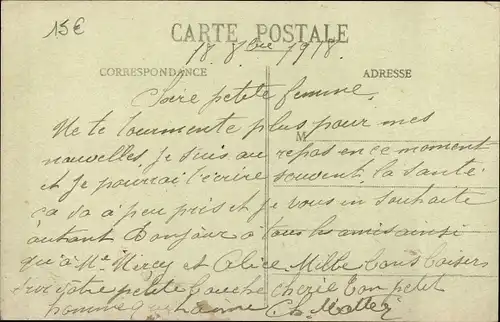 15€
CARTE POSTALE
18 8bre 1918.
CORRESPONDANCE
ADRESSE
M
petite femme,
Ne te tourmente plus pour mes
nouvelles, je suis au repos en ce moment
et je pourrai t'écrire souvent, la santé
ça va à peu pris et je vous en souhaite
autant Bonjour à tous les amis ainsi
qu'à Me Mercy et Alice Mille bons baisers
sur votre petite bouche chérie ton petit
homme qui t'aime Ch